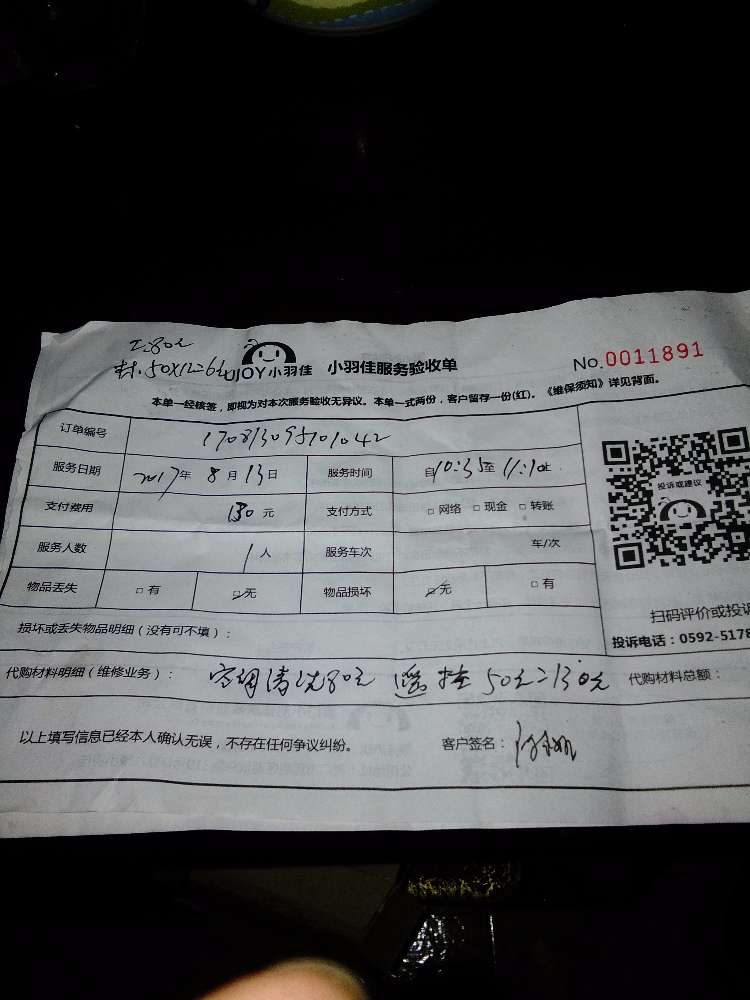 工80元
材.50X12=6元
JOY小羽佳 小羽佳服务验收单
No.0011891
本单一经核签，即视为对本次服务验收无异议。本单一式两份，客户留存一份(红)。《维保须知》详见背面。
订单编号 170813095101042
服务日期 2017年 8月13日 服务时间 自10:35至11:10止
支付费用 130元 支付方式 □网络 □现金 □转账
服务人数 1人 服务车次 车/次
物品丢失 □有 □无 物品损坏 □无 □有
投诉或建议
扫码评价或投诉
投诉电话：0592-5178
损坏或丢失物品明细（没有可不填）：
代购材料明细（维修业务）： 空调清洗80元 遥控50元=130元 代购材料总额：
以上填写信息已经本人确认无误，不存在任何争议纠纷。 客户签名：